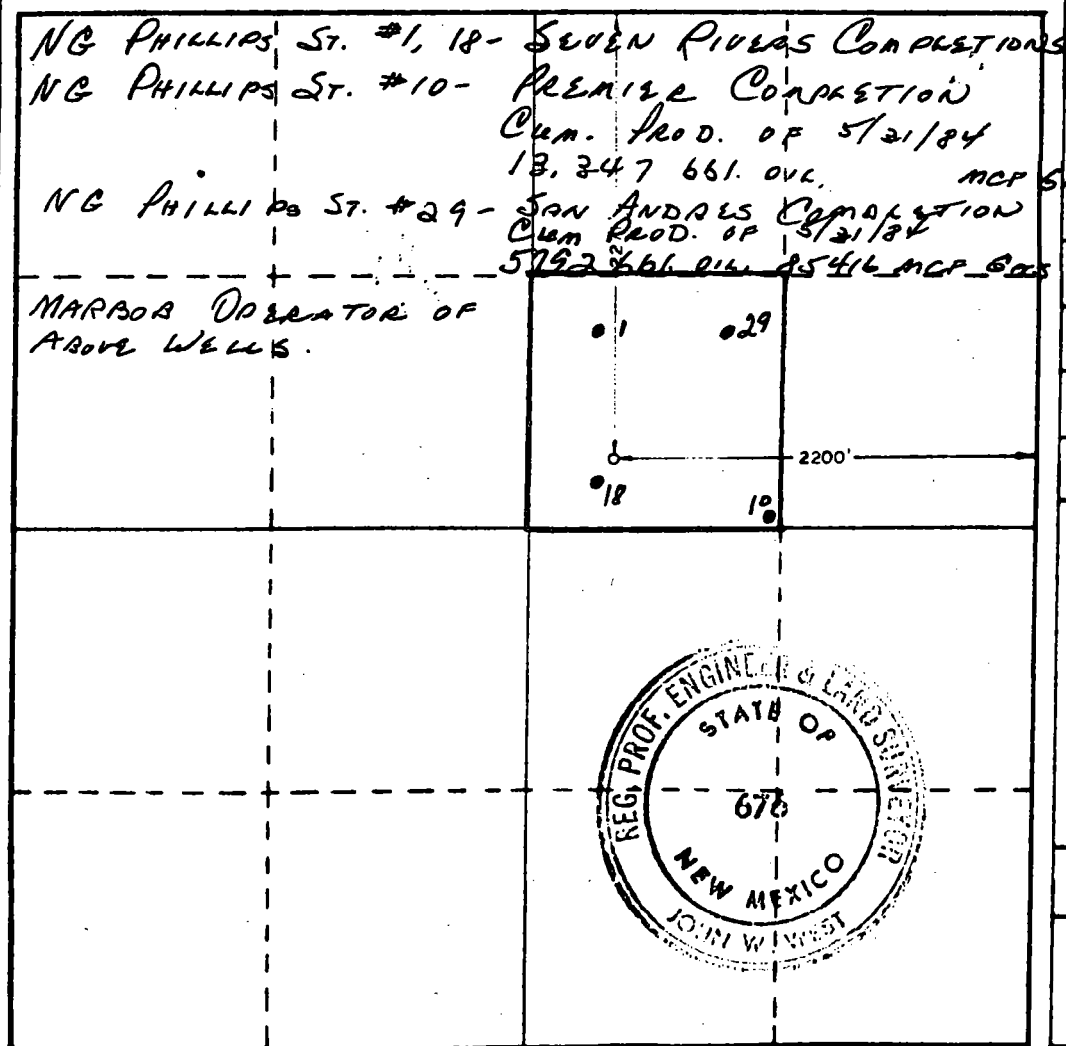 NG PHILLIPS ST. #1, 18- SEVEN RIVERS COMPLETIONS
NG PHILLIPS ST. #10- PREMIER COMPLETION
CUM. PROD. OF 5/31/84
13,347 bbl. OIL, MCF
NG PHILLIPS ST. #29- SAN ANDRES COMPLETION
CUM PROD. OF 5/31/84
5792 bbl. OIL. 85416 MCF GAS
MARBOB OPERATOR OF
ABOVE WELLS.
1
29
2200'
18
10
REG. PROF. ENGINEER & LAND SURVEYOR
STATE OF
676
NEW MEXICO
JOHN W. WEST